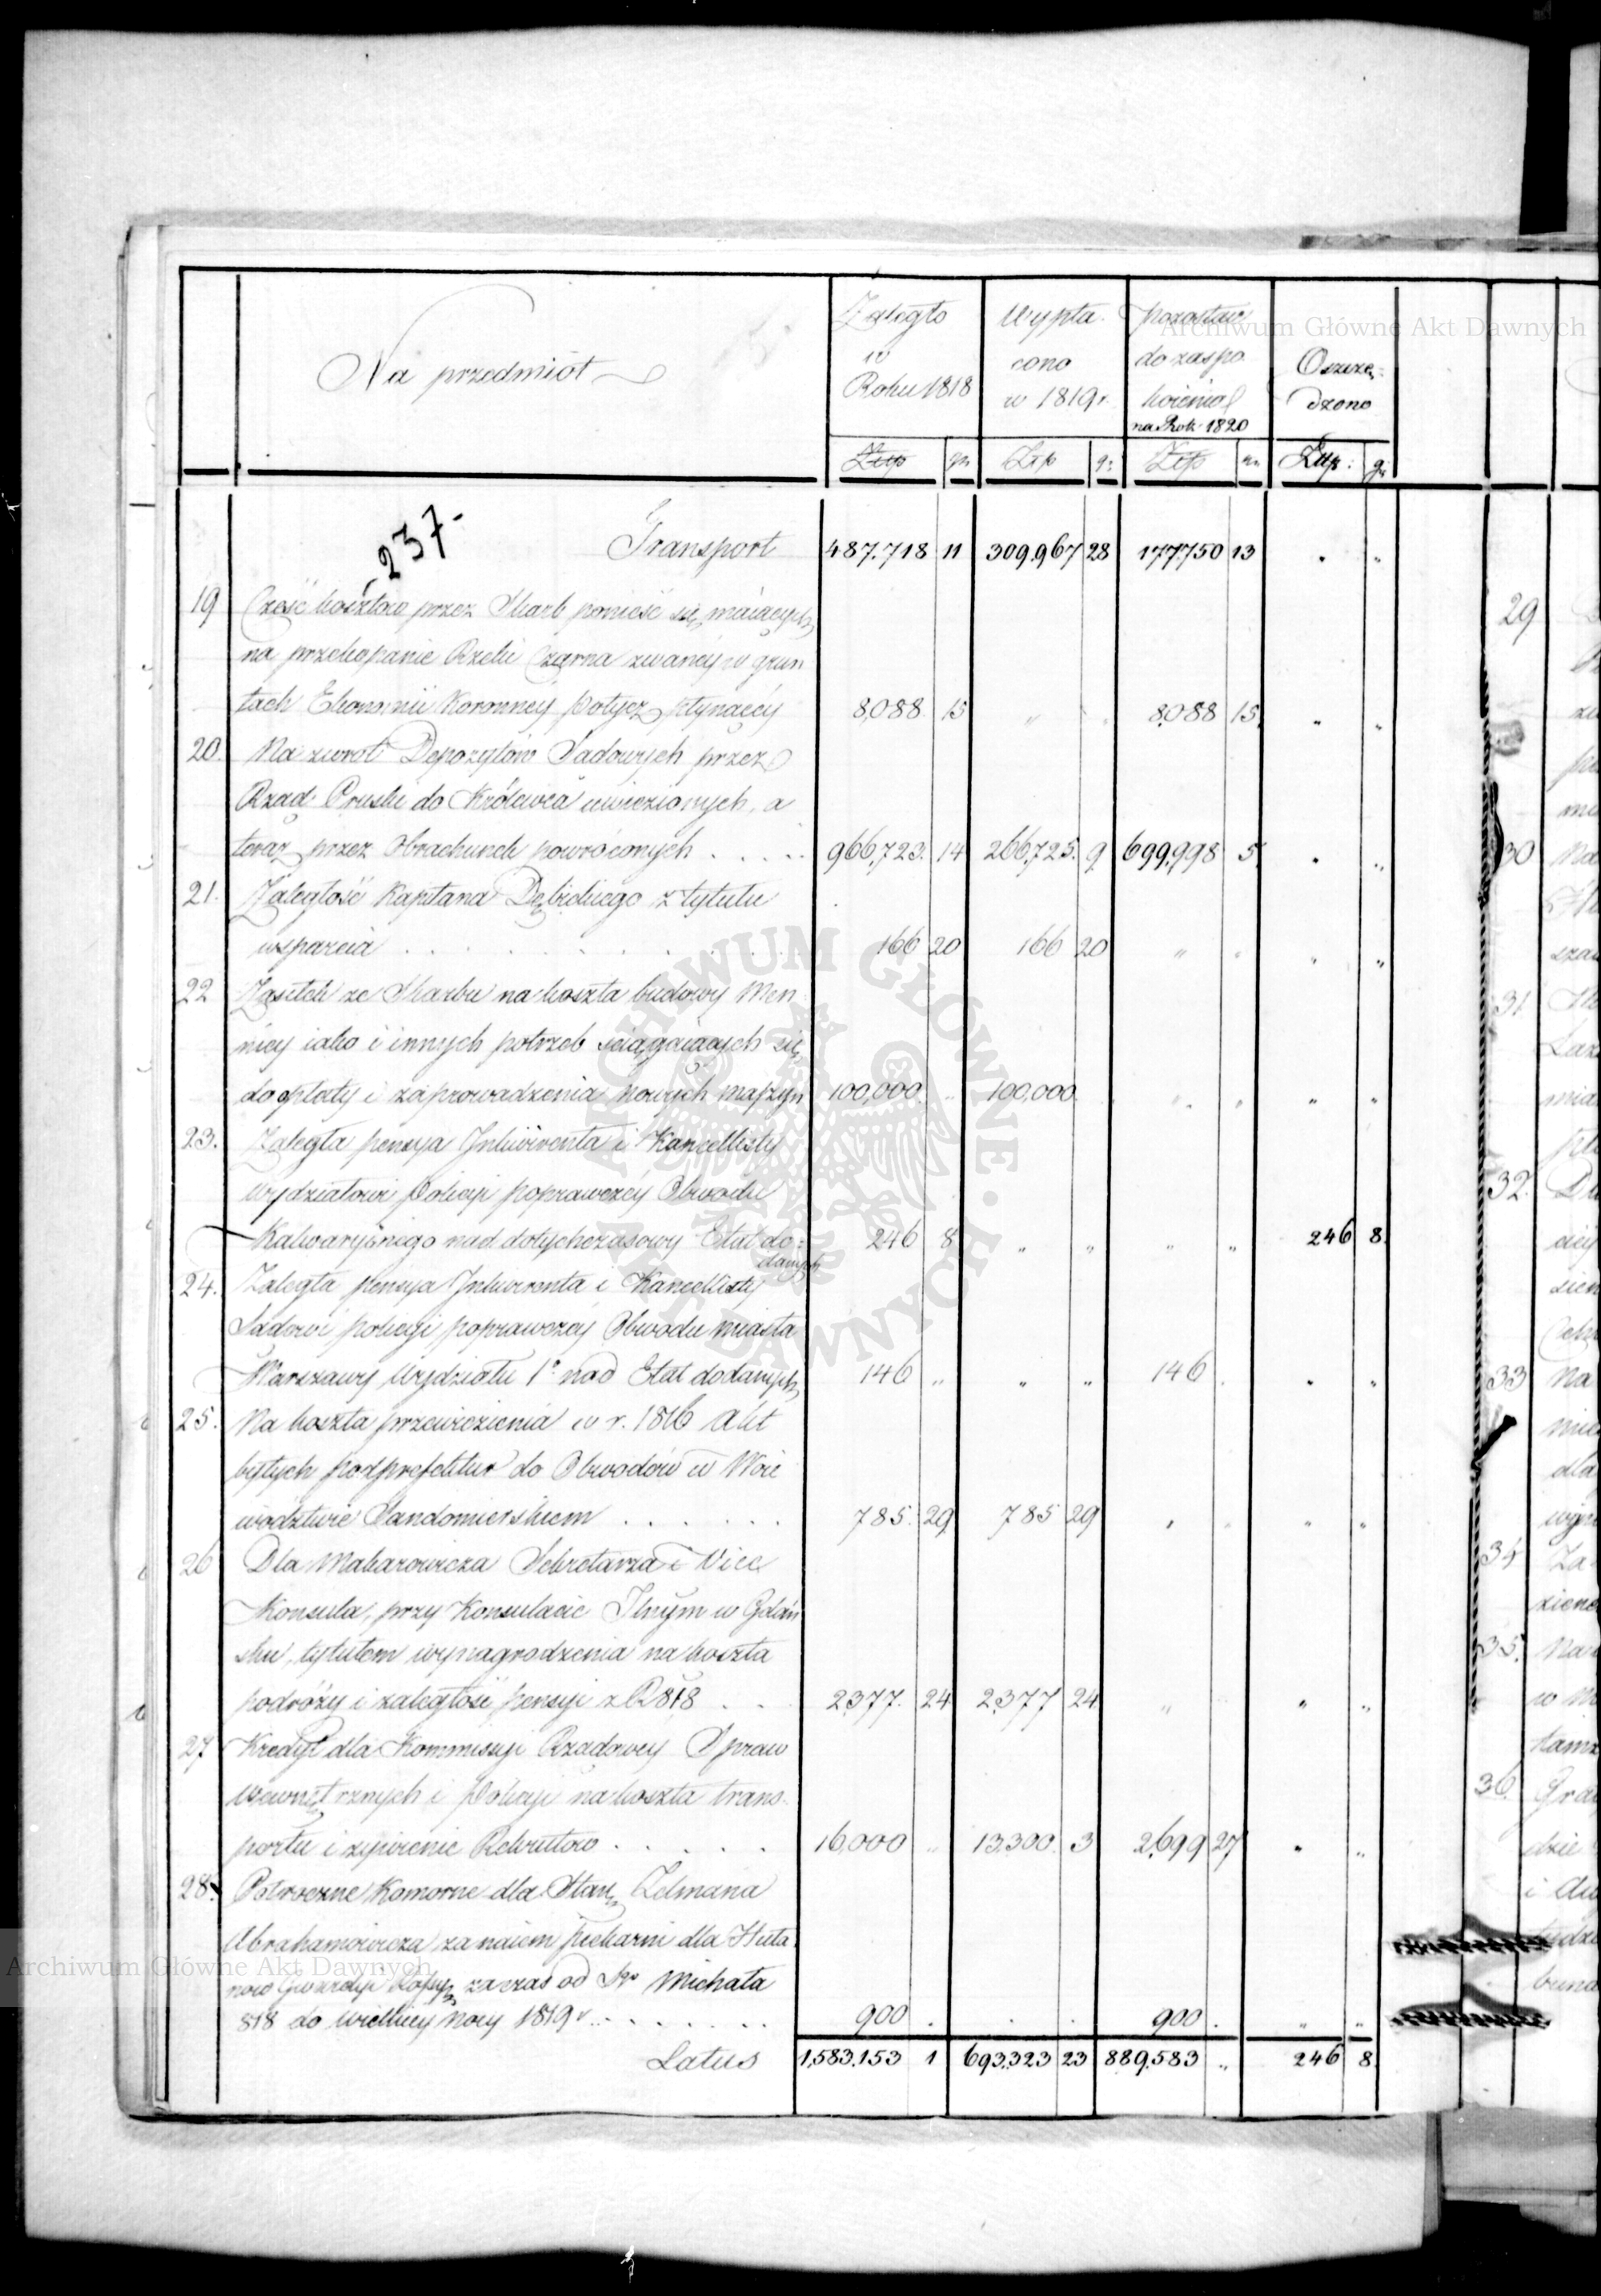 Archiwum Główne Akt Dawnych
Na przedmiot
Zaległo w Roku 1818
Wypłacono w 1819 r.
pozostaie do zaspokoienia na Rok 1820
Oszczędzono
Złtp gr. Złp gr. Złtp gr. Złtp: gr.
237.
Transport 487.718 11 309.967 28 177.750 13 " "
19 Część kosztow przez Skarb ponieść się maiących
na przekopanie Rzeki Czarna zwaney w grun
tach Ekonomii Koronney Połycz płynącéy 8,088 15 " " 8,088 15 " "
20. Na zwrot Depozytów Sądowych przez
Rząd Pruski do Królewca uwiezionych, a
teraz przez Obrachunek powróconych . . . . . 966,723. 14 266,725. 9 699,998 5 " "
21. Zaległość Kapitana Dębickiego z tytułu
wsparcia . . . . . . . 166 20 166 20 " " " "
22 Zasiłek ze Skarbu na koszta budowy Men
nicy iako i innych potrzeb ściągaiących się
do opłaty i zaprowadzenia nowych maszyn 100,000 " 100,000 " " " "
23. Zaległa pensya Inkwirenta i Kancellisty
wydziałowi Policyi poprawczéy Obwodu
Kalwaryiskiego nad dotychczasowy Etat do=
danych 246 8 " " " " 246 8.
24. Zaległa pensya Inkwirenta i Kancellisty
Sądowi policyi poprawczéy Obwodu miasta
Warszawy Wydziału 1º nad Etat dodanych 146 " " " 146 . " "
25. Na koszta przewiezienia w r. 1816 Akt
byłych podprefektur do Obwodów w Woie
wództwie Sandomierskiem . . . . . . 785. 29 785 29 " " " "
26 Dla Makarowicza Sekretarza i Vice
Konsula, przy Konsulacie Jlnym w Gdań
sku, tytułem wynagrodzenia na koszta
podróży i zaległość pensyi z R 818 . . 2377. 24 2,377 24 " " "
27 Kredyt dla Kommissyi Rządowey Spraw
Wewnętrznych i Policyi na koszta trans-
portu i żywienie Rekrutow . . . . . 16,000 " 13,300. 3 2,699 27 " "
28. Półroczne Komorne dla Star. Zelmana
Abrahamowicza za naiem piekarni dla Huła
now Gwardyi Rossy. za czas od Sgo Michała
818 do wielkiey nocy 1819 r. . . . . . . . 900 . . . 900 . " "
Latus 1,583,153 1 693,323 23 889,583 " 246 8
29
30
31
32.
33
34
35.
36.
Archiwum Główne Akt Dawnych
ARCHIWUM GŁÓWNE AKT DAWNYCH